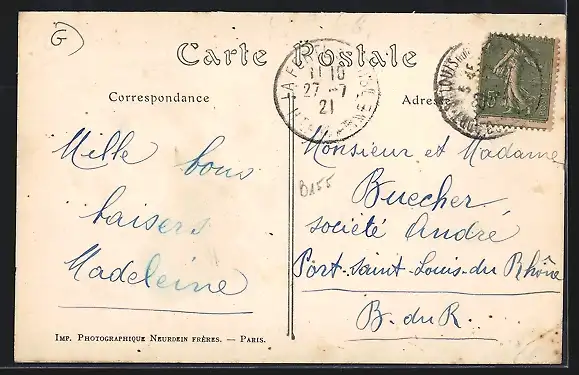 G
Carte Postale
Correspondance
Adresse
11 10
27-7
21
15
Mille bons
baisers
Madeleine
B155
Monsieur et Madame
Buecher
société André
Port-Saint-Louis-du Rhône
B. du R.
Imp. Photographique Neurdein Frères. — Paris.